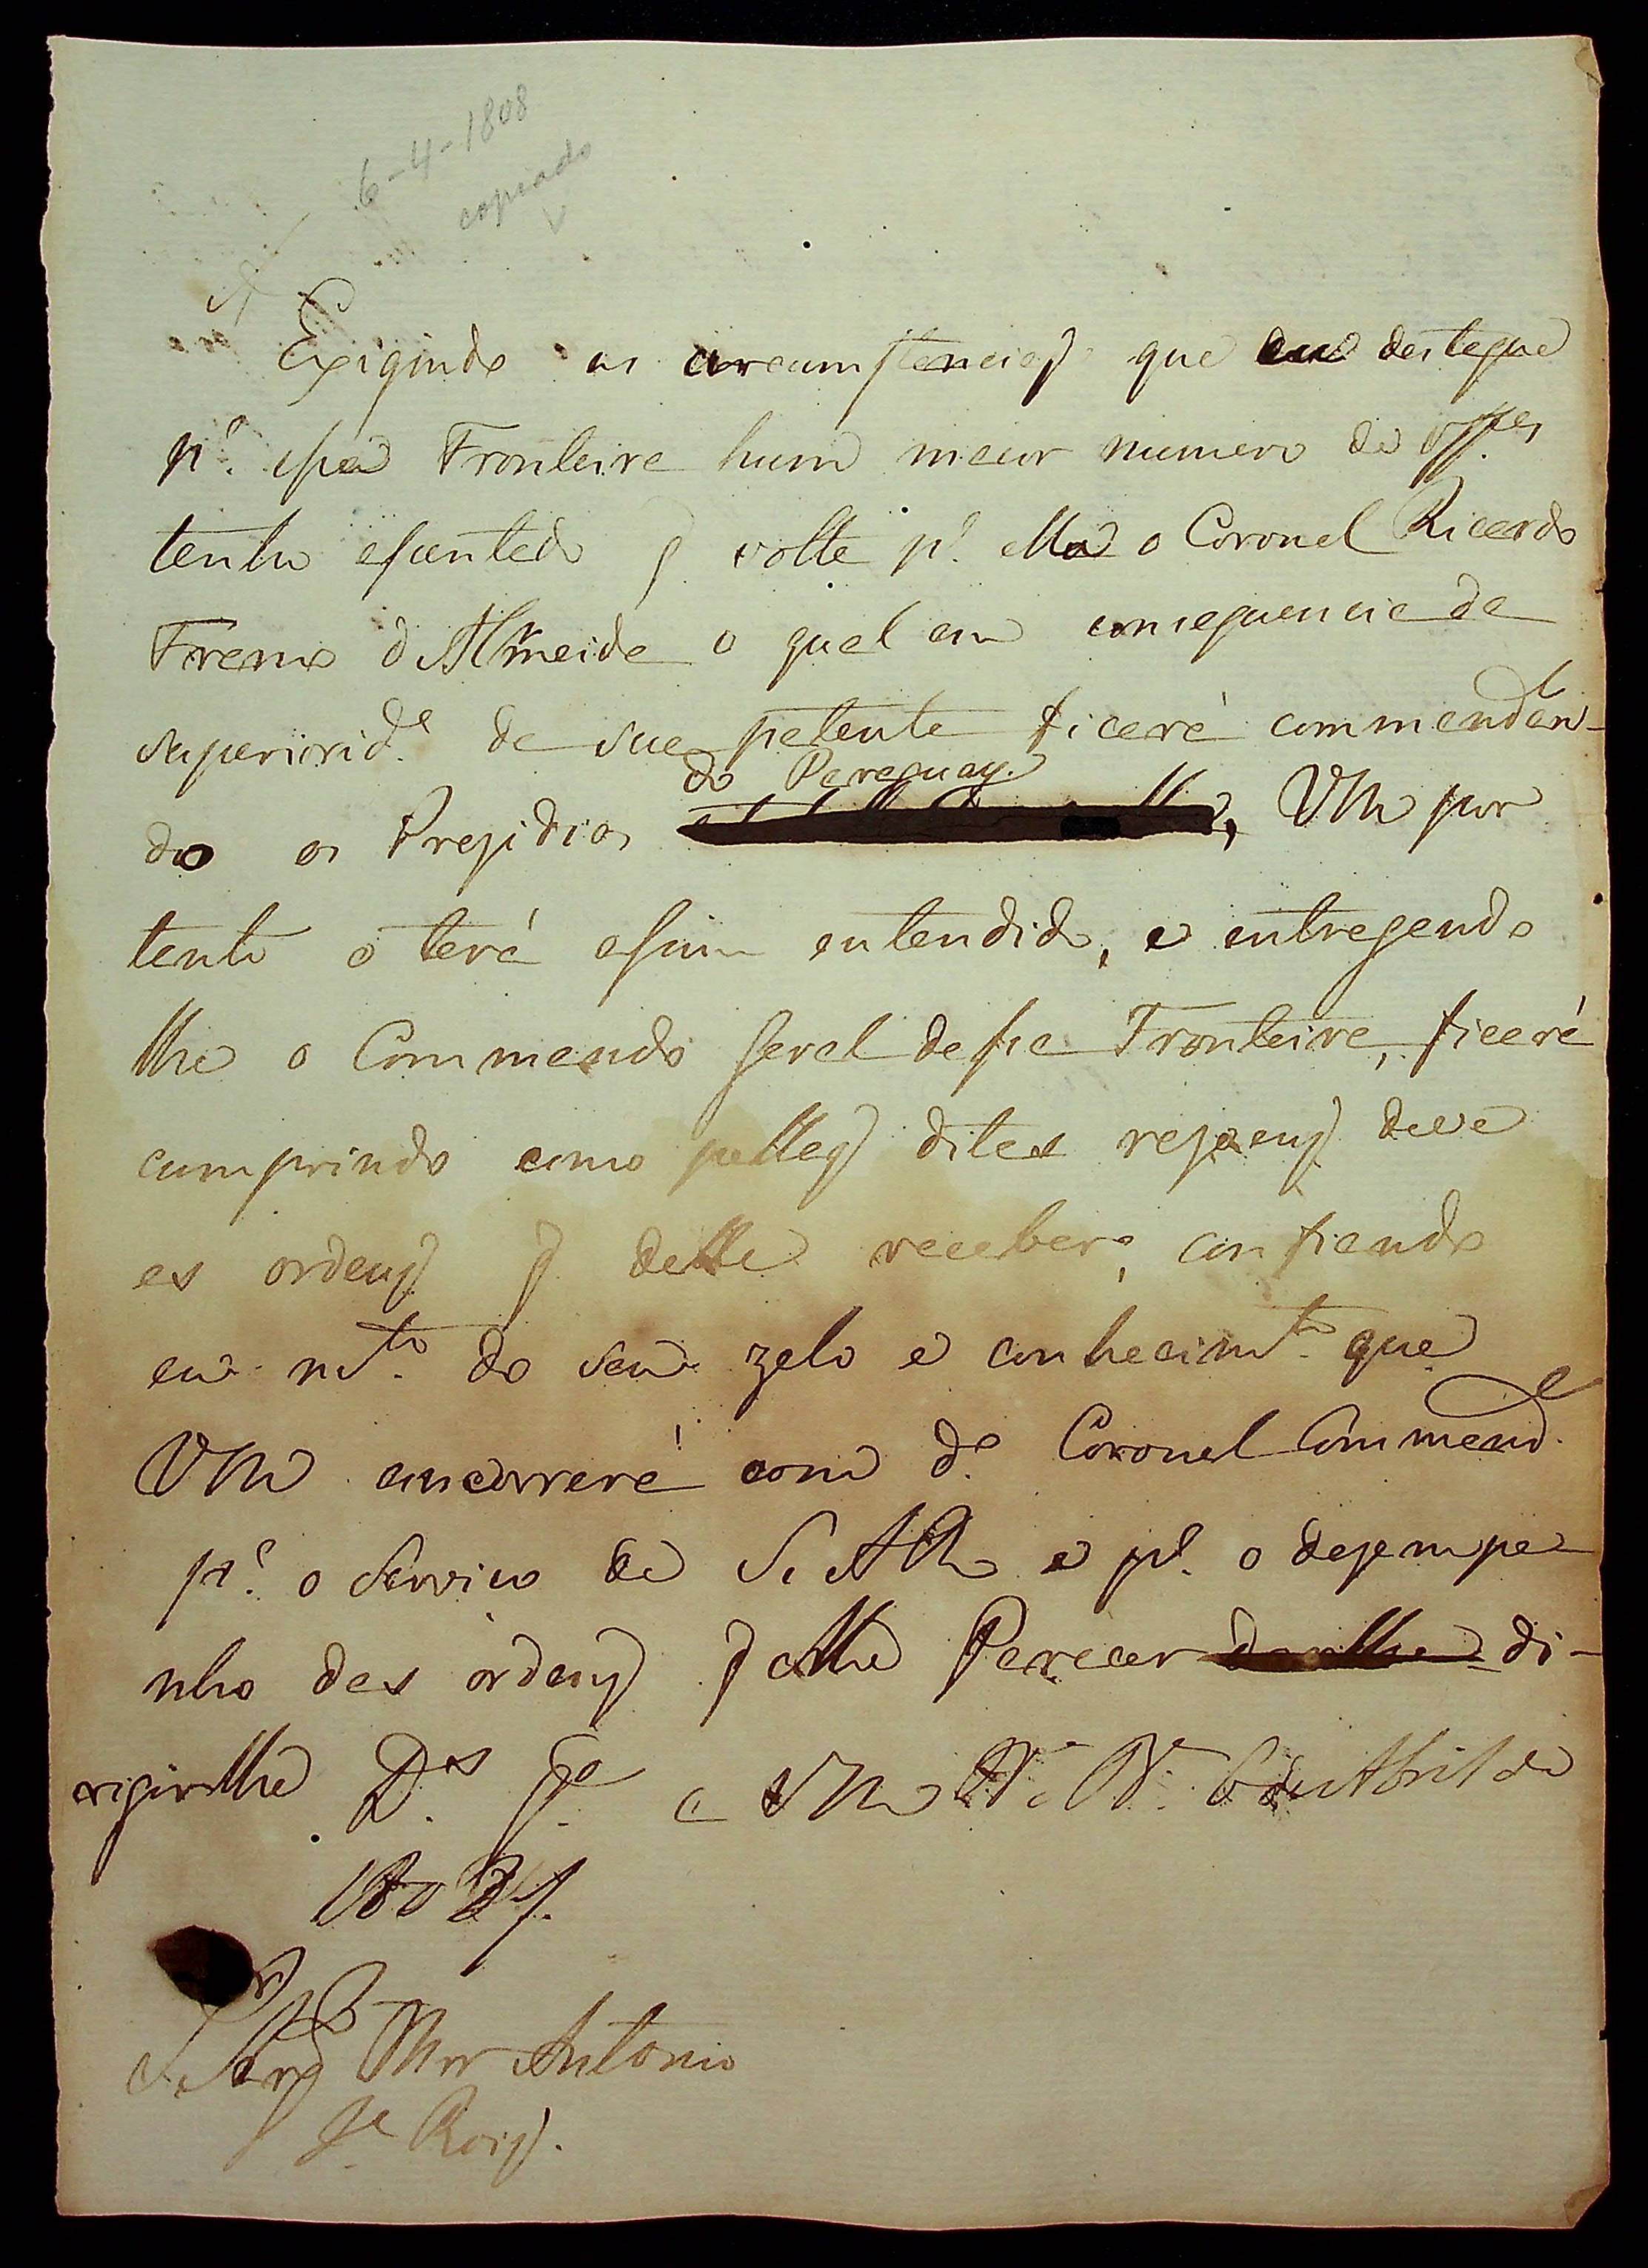 6-4-1808
copiado
Exigindo as circumstancias que eu destaque
pª. essa Fronteira hum maior numero de off.es
tenho assentado q. volte pª. ella o Coronel Ricardo
Franco d'Almeida o qual em consequencia da
superiorid.e da sua patente ficará commandan-
do Paraguay.
do os Prezidios, VM por
tanto o terá assim entendido, e entregando
lhe o Commando geral dessa Fronteira, ficará
cumprindo como pellas ditas rezoens deve
as ordens q. delle receber, confiando
eu m.to do seu zelo e conhecim.to que
VM concorrerá com d.º Coronel Command.e
pª. o Serviço de S. A R e pª. o dezempe
nho das ordens q elle Parecer di-
rigirlhe D.s G.e a VM 6 de Abril de
180
Sr. Sarg Mor Antonio
Je Roiz.